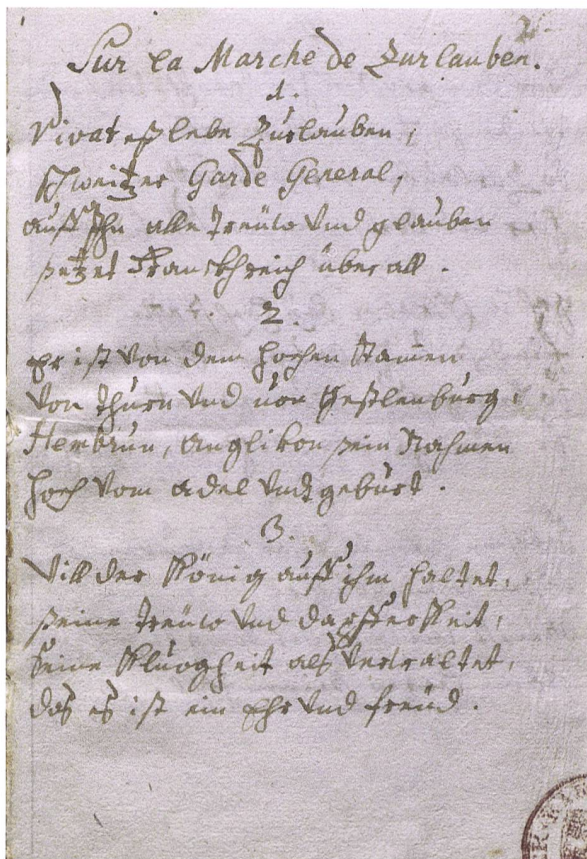 2
Sur la Marche de Zurlauben.
1.
Vivat eß lebe Zurlauben,
schweitzer Garde General,
auff Ihn alle Treüw und glauben
setzet Franckhreich über all.
2.
Er ist von dem hochen Stam̄en
von Thurn und von Gestlenburg,
Hembrun, Anglikon sein Nahmen
hoch vom adel undt geburt.
3.
Vill der König auff ihm haltet,
seine Treüw und dapfferkeit,
seine Kluogheit alß verwaltet,
das es ist ein Ehr und freüd.